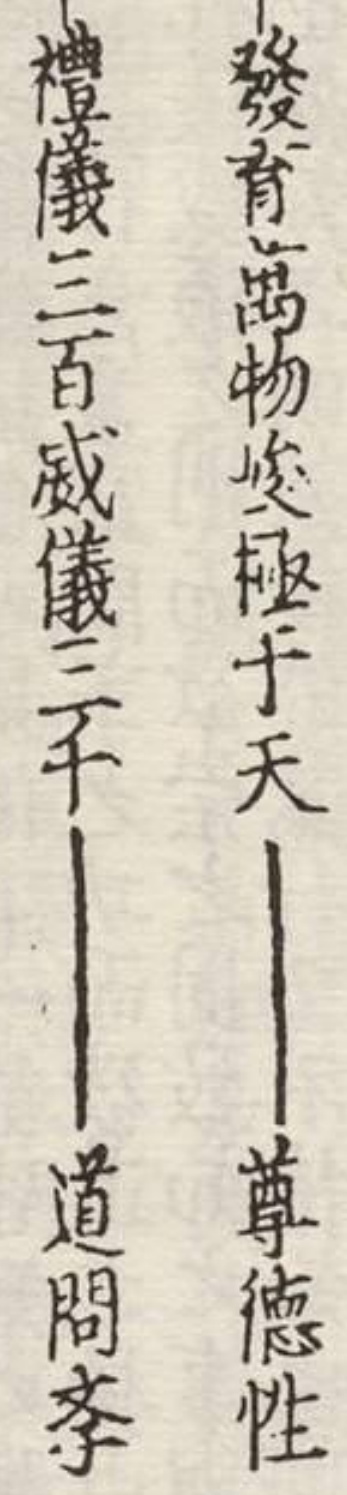 發育萬物峻極于天 尊德性
禮儀三百威儀三千 道問斈